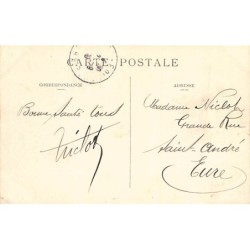 CARTE POSTALE
CORRESPONDANCE
ADRESSE
Bonne Santé tous
Niclot
Madame Niclot
Grande Rue
Saint André
Eure